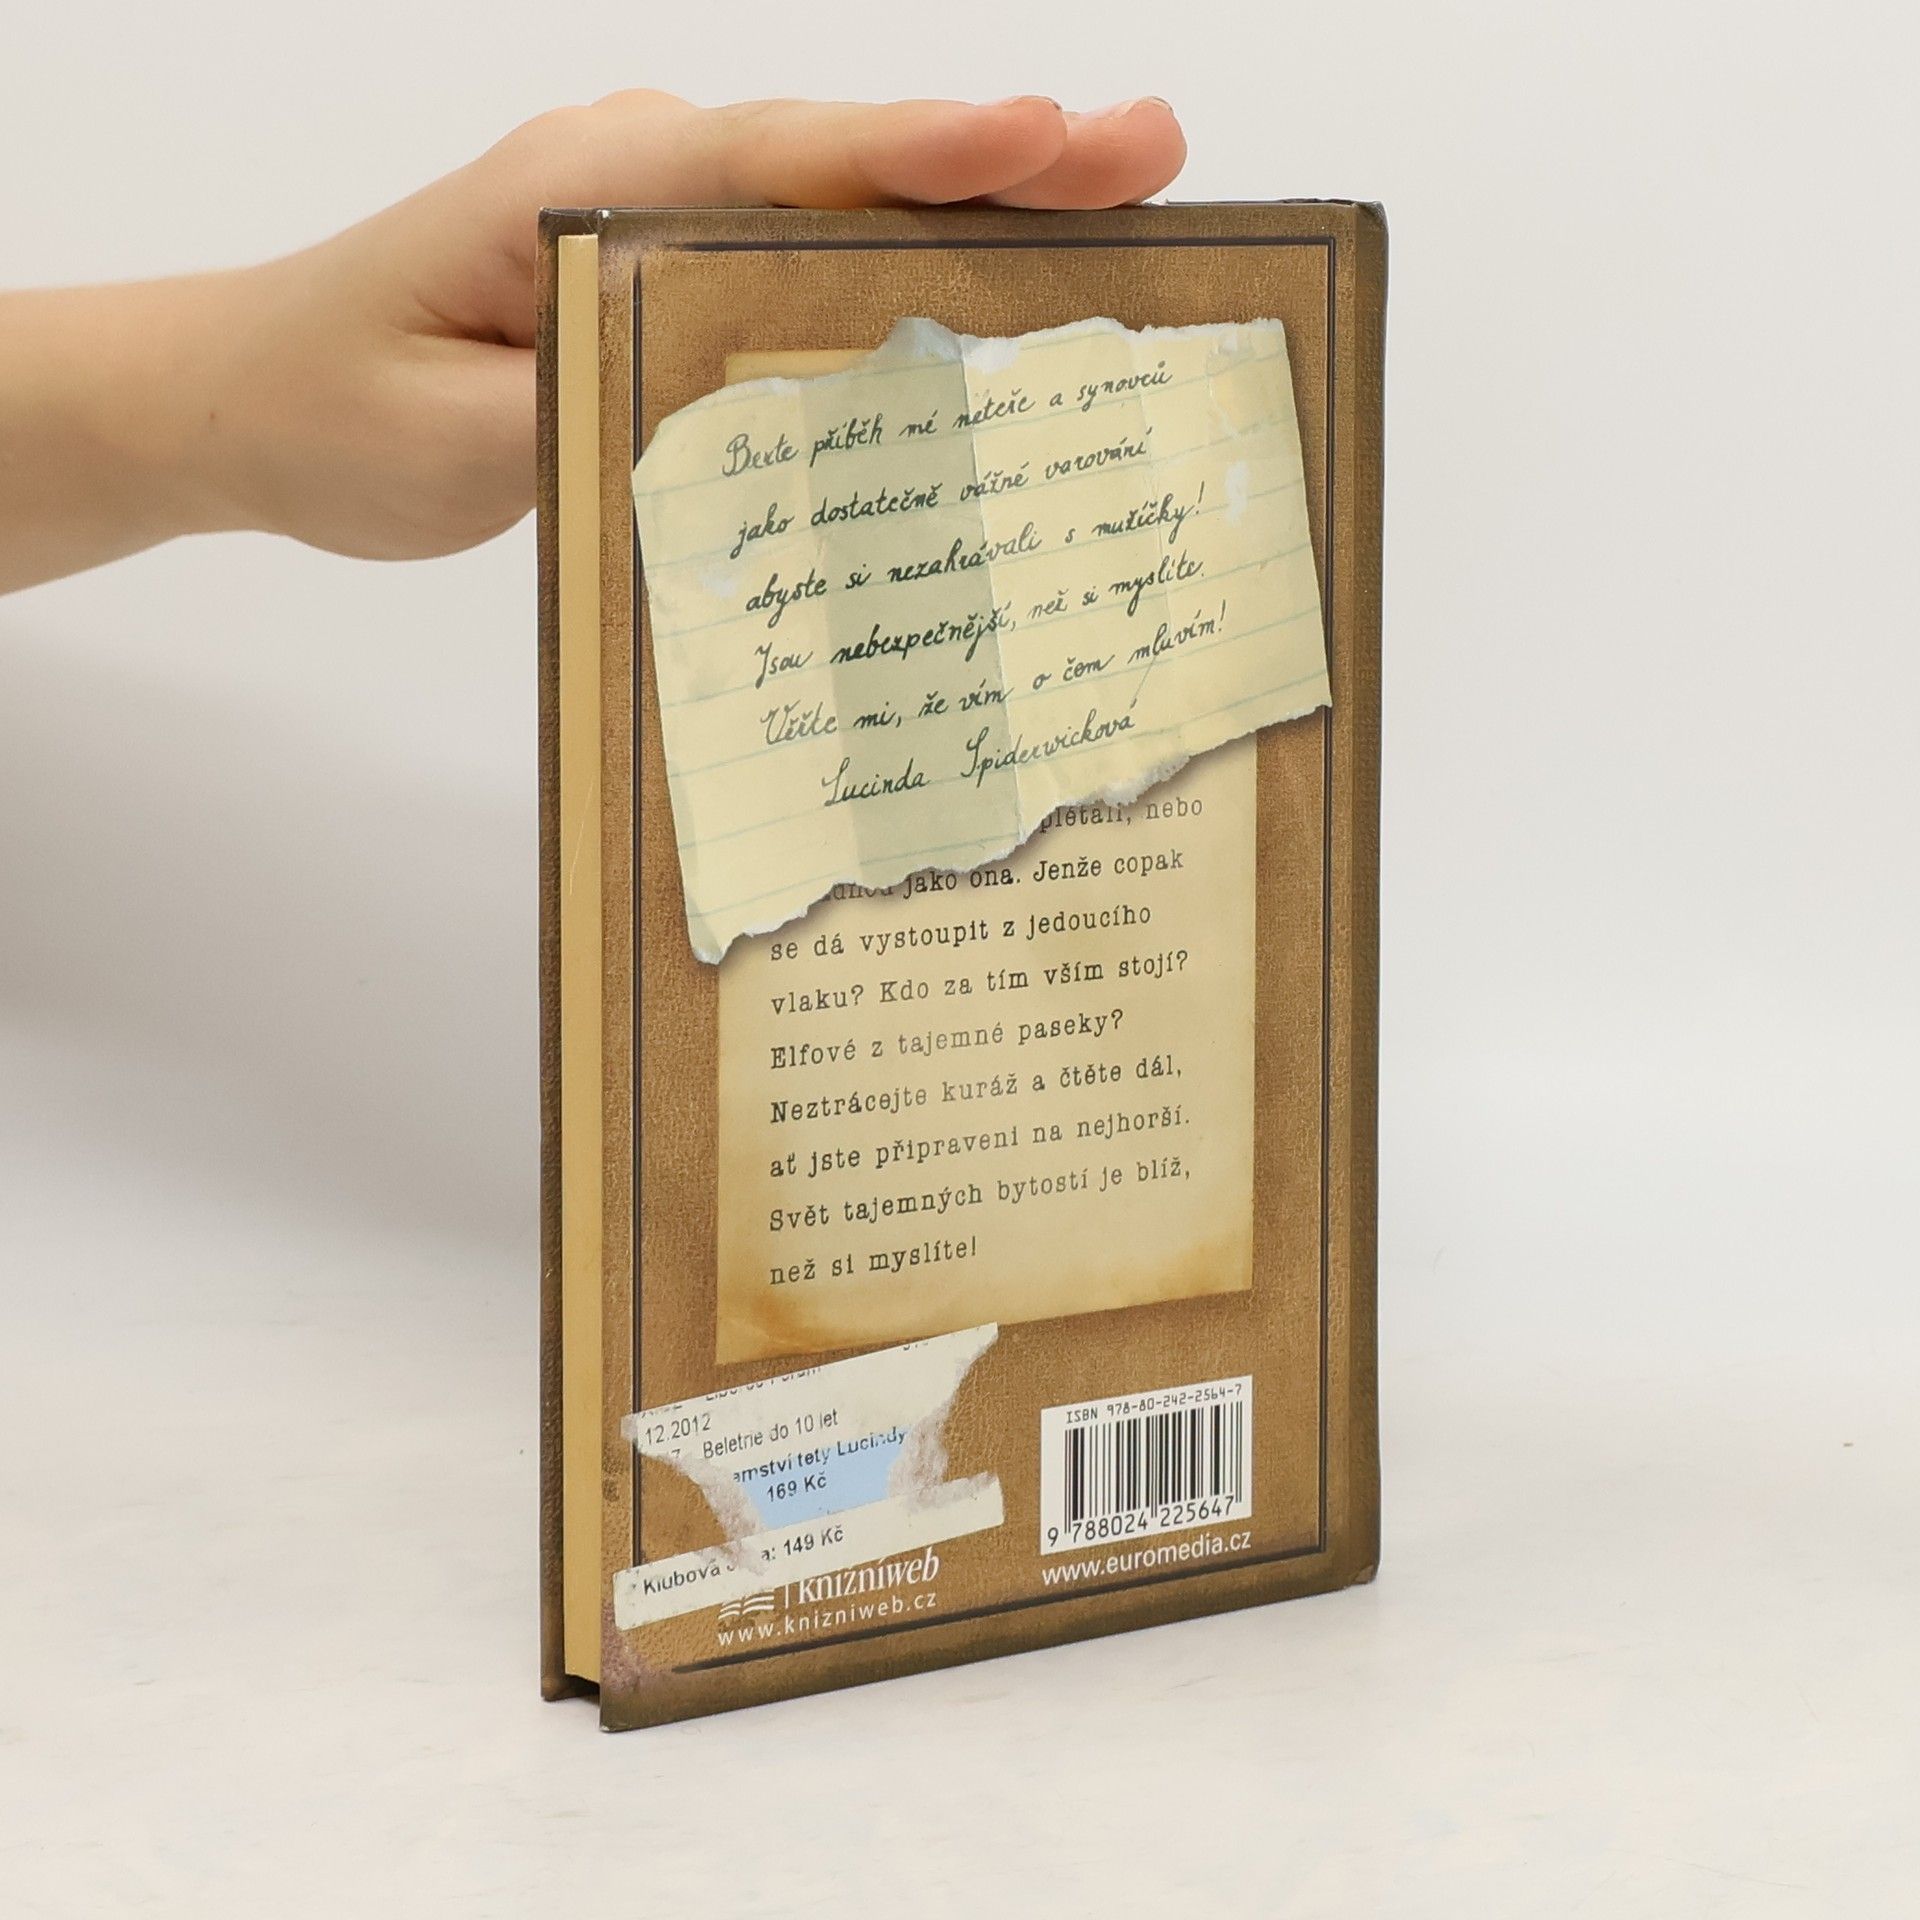 Berte příběh mé neteře a synovců
jako dostatečně vážné varování
abyste si nezahrávali s mužíčky!
Jsou nebezpečnější, než si myslíte.
Věřte mi, že vím o čem mluvím!
Lucinda Spiderwicková
plétali, nebo
jako ona. Jenže copak
se dá vystoupit z jedoucího
vlaku? Kdo za tím vším stojí?
Elfové z tajemné paseky?
Neztrácejte kuráž a čtěte dál,
ať jste připraveni na nejhorší.
Svět tajemných bytostí je blíž,
než si myslíte!
12.2012
Beletrie do 10 let
emství tety Lucindy
169 Kč
Klubová a: 149 Kč
knižníweb
www.knizniweb.cz
ISBN 978-80-242-2564-7
9 788024 225647
www.euromedia.cz